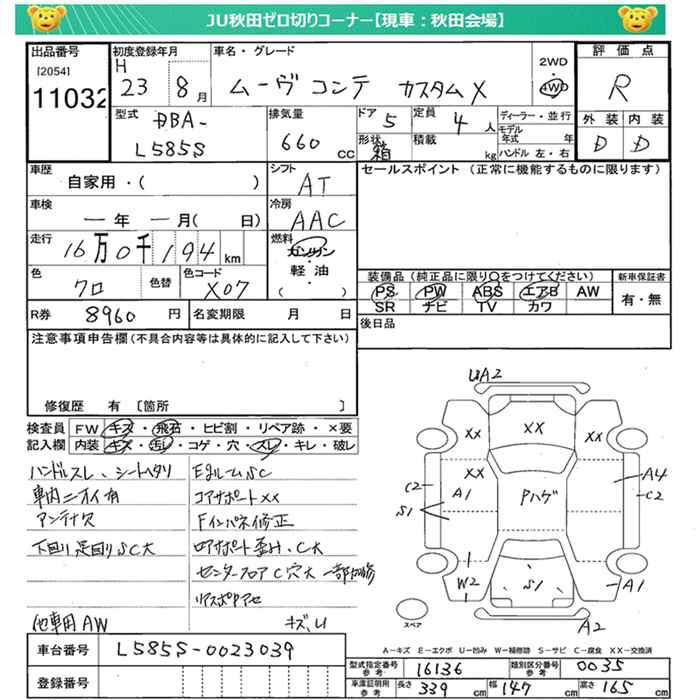 JU秋田ゼロ切りコーナー【現車：秋田会場】
出品番号 初度登録年月 車名・グレード 評価点
[2054] 11032
H 23 8月
ムーヴ コンテ カスタム X
2WD 4WD
R
型式 DBA-L585S
排気量 660 CC
ドア 5 定員 4 人
形状 箱 積載 kg
ディーラー・並行
モデル年式 年
ハンドル 左・右
外装 内装
D D
車歴 自家用・( )
シフト AT
セールスポイント（正常に機能するものに限ります）
車検 ー年 ー月( 日)
冷房 AAC
走行 16万0千194 km
燃料 ガソリン 軽油 ・( )
色 クロ 色替 色コード X07
装備品（純正品に限り○をつけてください） 新車保証書
PS PW ABS エアB AW 有・無
SR ナビ TV カワ
R券 8960 円 名変期限 月 日
後日品
注意事項申告欄（不具合内容等は具体的に記入して下さい）
修復歴 有 〔箇所 〕
検査員記入欄
FW キズ・飛石・ヒビ割・リペア跡・×要
内装 キズ・汚レ・コゲ・穴・スレ・キレ・破レ
ハンドルスレ、シートヘタリ
車内ニオイ有
アンテナ欠
下回り足回りSC大
他車用AW
EルームSC
コアサポートXX
Fインパネ修正
ロアサポート歪ミ、C大
センターフロアC穴大 一部切修
キズ、U
UA2
XX XX XX
XX
C2 A1 Pハゲ A4 C2
S1
W2 S1 A1
A2
スペア
A－キズ E－エクボ U－凹み W－補修跡 S－サビ C－腐食 XX－交換済
車台番号 L585S-0023039
登録番号
型式指定番号 16136 類別区分番号 0035
車庫証明用参考 長さ 339 cm 幅 147 cm 高さ 165 cm